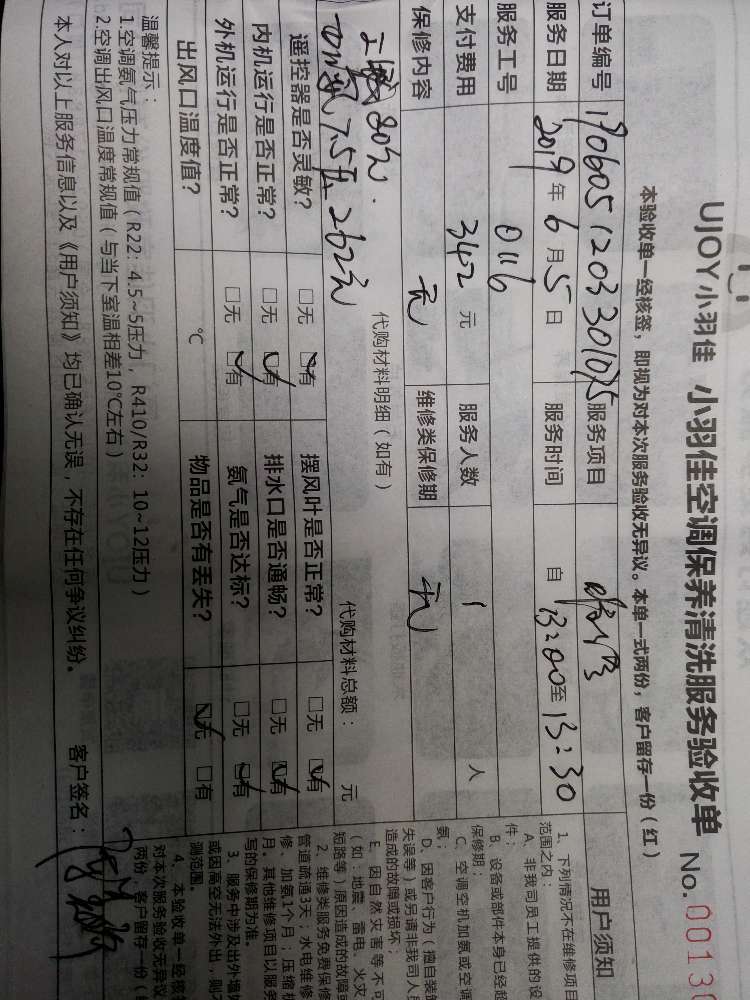 UJOY小羽佳 小羽佳空调保养清洗服务验收单 No.00130
本验收单一经核签，即视为对本次服务验收无异议。本单一式两份，客户留存一份（红）
订单编号 1906051203301075 服务项目
服务日期 2019年6月5日 服务时间 自13:00至13:30
服务工号 0116
支付费用 342元 服务人数 1人
保修内容 无 维修类保修期 无
代购材料明细（如有） 代购材料总额： 元
80元.
加氨7.5压262元
遥控器是否灵敏？ □无 ☑有 摆风叶是否正常？ □无 ☑有
内机运行是否正常？ □无 ☑有 排水口是否通畅？ □无 ☑有
外机运行是否正常？ □无 ☑有 氨气是否达标？ □无 ☑有
出风口温度值？ ℃ 物品是否有丢失？ ☑无 □有
温馨提示：
1.空调氨气压力常规值（R22：4.5~5压力，R410/R32：10~12压力）
2.空调出风口温度常规值（与当下室温相差10℃左右）
本人对以上服务信息以及《用户须知》均已确认无误，不存在任何争议纠纷。 客户签名：
用户须知
1、下列情况不在维修项目
范围之内：
A、非我司员工提供的设
件；
B、设备或部件本身已经超
保修期；
C、空调空机加氨或空调
氨；
D、因客户行为（擅自装
失误等）或另请非我司人员
造成的故障或损坏；
E、因自然灾害等不可
（如：地震、雷电、火灾、
短路等）原因造成的故障
2、维修类服务免费保修
管道疏通3天；水电维修
修、加氨1个月；压缩机
月。其他维修项目以服务
写的保修期为准。
3、服务中涉及出外墙
或因高空无法外出，则
测范围。
4、本验收单一经核
对本次服务验收无异议
两份，客户留存一份（